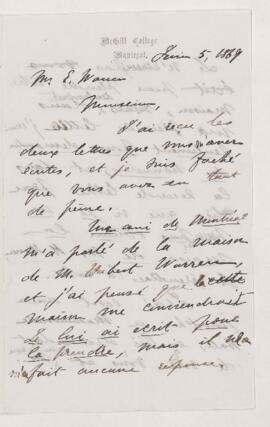 McGill College,
Montreal,
Juin 5, 1869
Mr. E. Warren
Monsieur,
J'ai reçu les
deux lettres que vous m'avez
écrites, et je suis faché
que vous avez eu tant
de peine.
Un ami de Montréal
m'a parlé de la maison
de M. Warren,
et j'ai pensé que cette
maison me conviendrait
Je lui ai ecrit pour
la prendre, mais il
m'a fait aucune réponse.